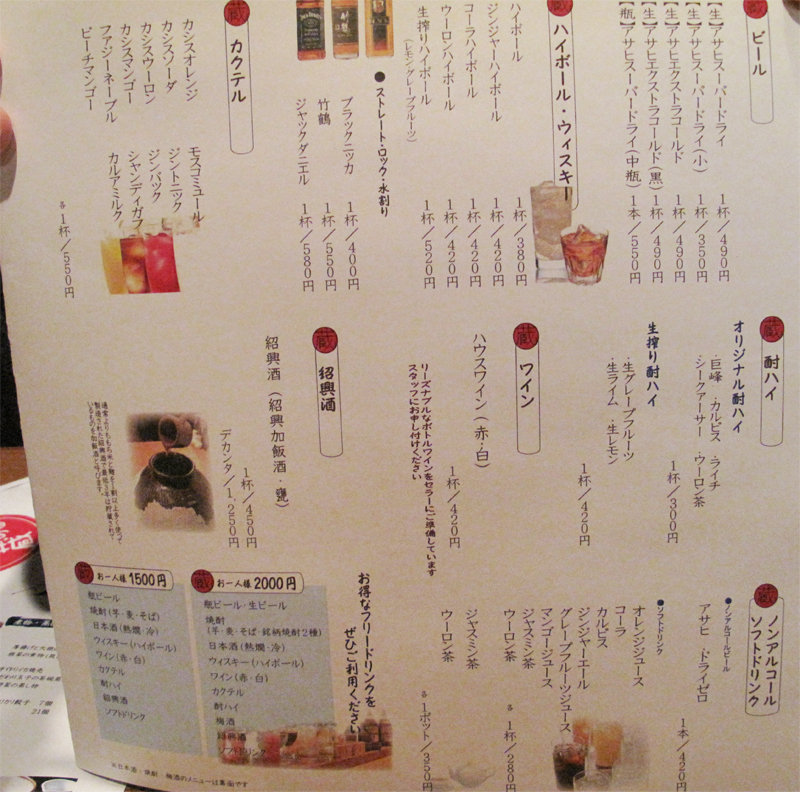 蔵 ビール
【生】アサヒスーパードライ 1杯/490円
【生】アサヒスーパードライ(小) 1杯/350円
【生】アサヒエクストラコールド 1杯/490円
【生】アサヒエクストラコールド(黒) 1杯/490円
【瓶】アサヒスーパードライ(中瓶) 1本/550円
蔵 ハイボール・ウィスキー
ハイボール 1杯/380円
ジンジャーハイボール 1杯/420円
コーラハイボール 1杯/420円
ウーロンハイボール 1杯/420円
生搾りハイボール 1杯/520円
(レモン・グレープフルーツ)
●ストレート・ロック・水割り
ブラックニッカ 1杯/400円
竹鶴 1杯/550円
ジャックダニエル 1杯/580円
蔵 カクテル
カシスオレンジ
カシスソーダ
カシスウーロン
カシスマンゴー
ファジーネーブル
ピーチマンゴー
モスコミュール
ジントニック
ジンバック
シャンディガフ
カルアミルク
各1杯/550円
蔵 酎ハイ
オリジナル酎ハイ
・巨峰 ・カルピス ・ライチ
・シークァーサー ・ウーロン茶
1杯/300円
生搾り酎ハイ
・生グレープフルーツ
・生ライム ・生レモン
1杯/420円
蔵 ワイン
ハウスワイン(赤・白)
1杯/420円
リーズナブルなボトルワインをセラーにご準備しています
スタッフにお申し付けください
蔵 紹興酒
紹興酒(紹興加飯酒・甕)
1杯/450円
デカンタ/1,250円
通常よりもち米と麹を1割以上多く使って
製造された紹興酒で最低3年は貯蔵されて
いるものを加飯酒と呼びます。
蔵 ノンアルコール
ソフトドリンク
●ノンアルコールビール
アサヒ ドライゼロ
1本/420円
●ソフトドリンク
オレンジジュース
コーラ
カルピス
ジンジャーエール
グレープフルーツジュース
マンゴージュース
ジャスミン茶
ウーロン茶
各1杯/280円
ジャスミン茶
ウーロン茶
各1ポット/350円
お得なフリードリンクを
ぜひご利用ください
蔵 お一人様2000円
瓶ビール・生ビール
焼酎
(芋・麦・そば・銘柄焼酎2種)
日本酒(熱燗・冷)
ウィスキー(ハイボール)
ワイン(赤・白)
カクテル
酎ハイ
梅酒
紹興酒
ソフトドリンク
蔵 お一人様1500円
瓶ビール
焼酎(芋・麦・そば)
日本酒(熱燗・冷)
ウィスキー(ハイボール)
ワイン(赤・白)
カクテル
酎ハイ
紹興酒
ソフトドリンク
※日本酒・焼酎・梅酒のメニューは裏面です
7個
21個